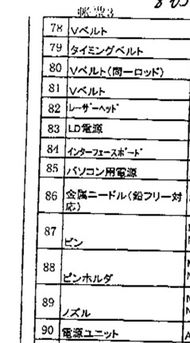 78 Vベルト
79 タイミングベルト
80 Vベルト(同一ロッド)
81 Vベルト
82 レーザーヘッド
83 LD電源
84 インターフェースボード
85 パソコン用電源
86 金属ニードル(鉛フリー対
応)
87 ピン
88 ピンホルダ
89 ノズル
90 電源ユニット